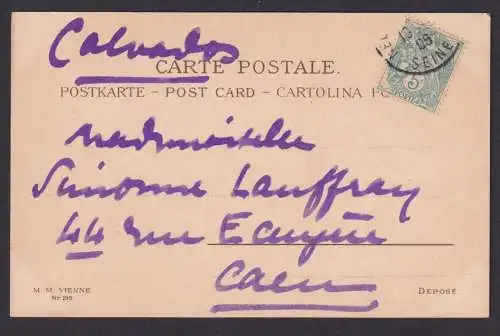 Calvados
CARTE POSTALE.
POSTKARTE – POST CARD – CARTOLINA PO
Mademoiselle
Simonne Lauffray
44 rue Ecuyère
Caen
M. M. VIENNE
Nr. 195
DEPOSÉ.
06
SEINE
5